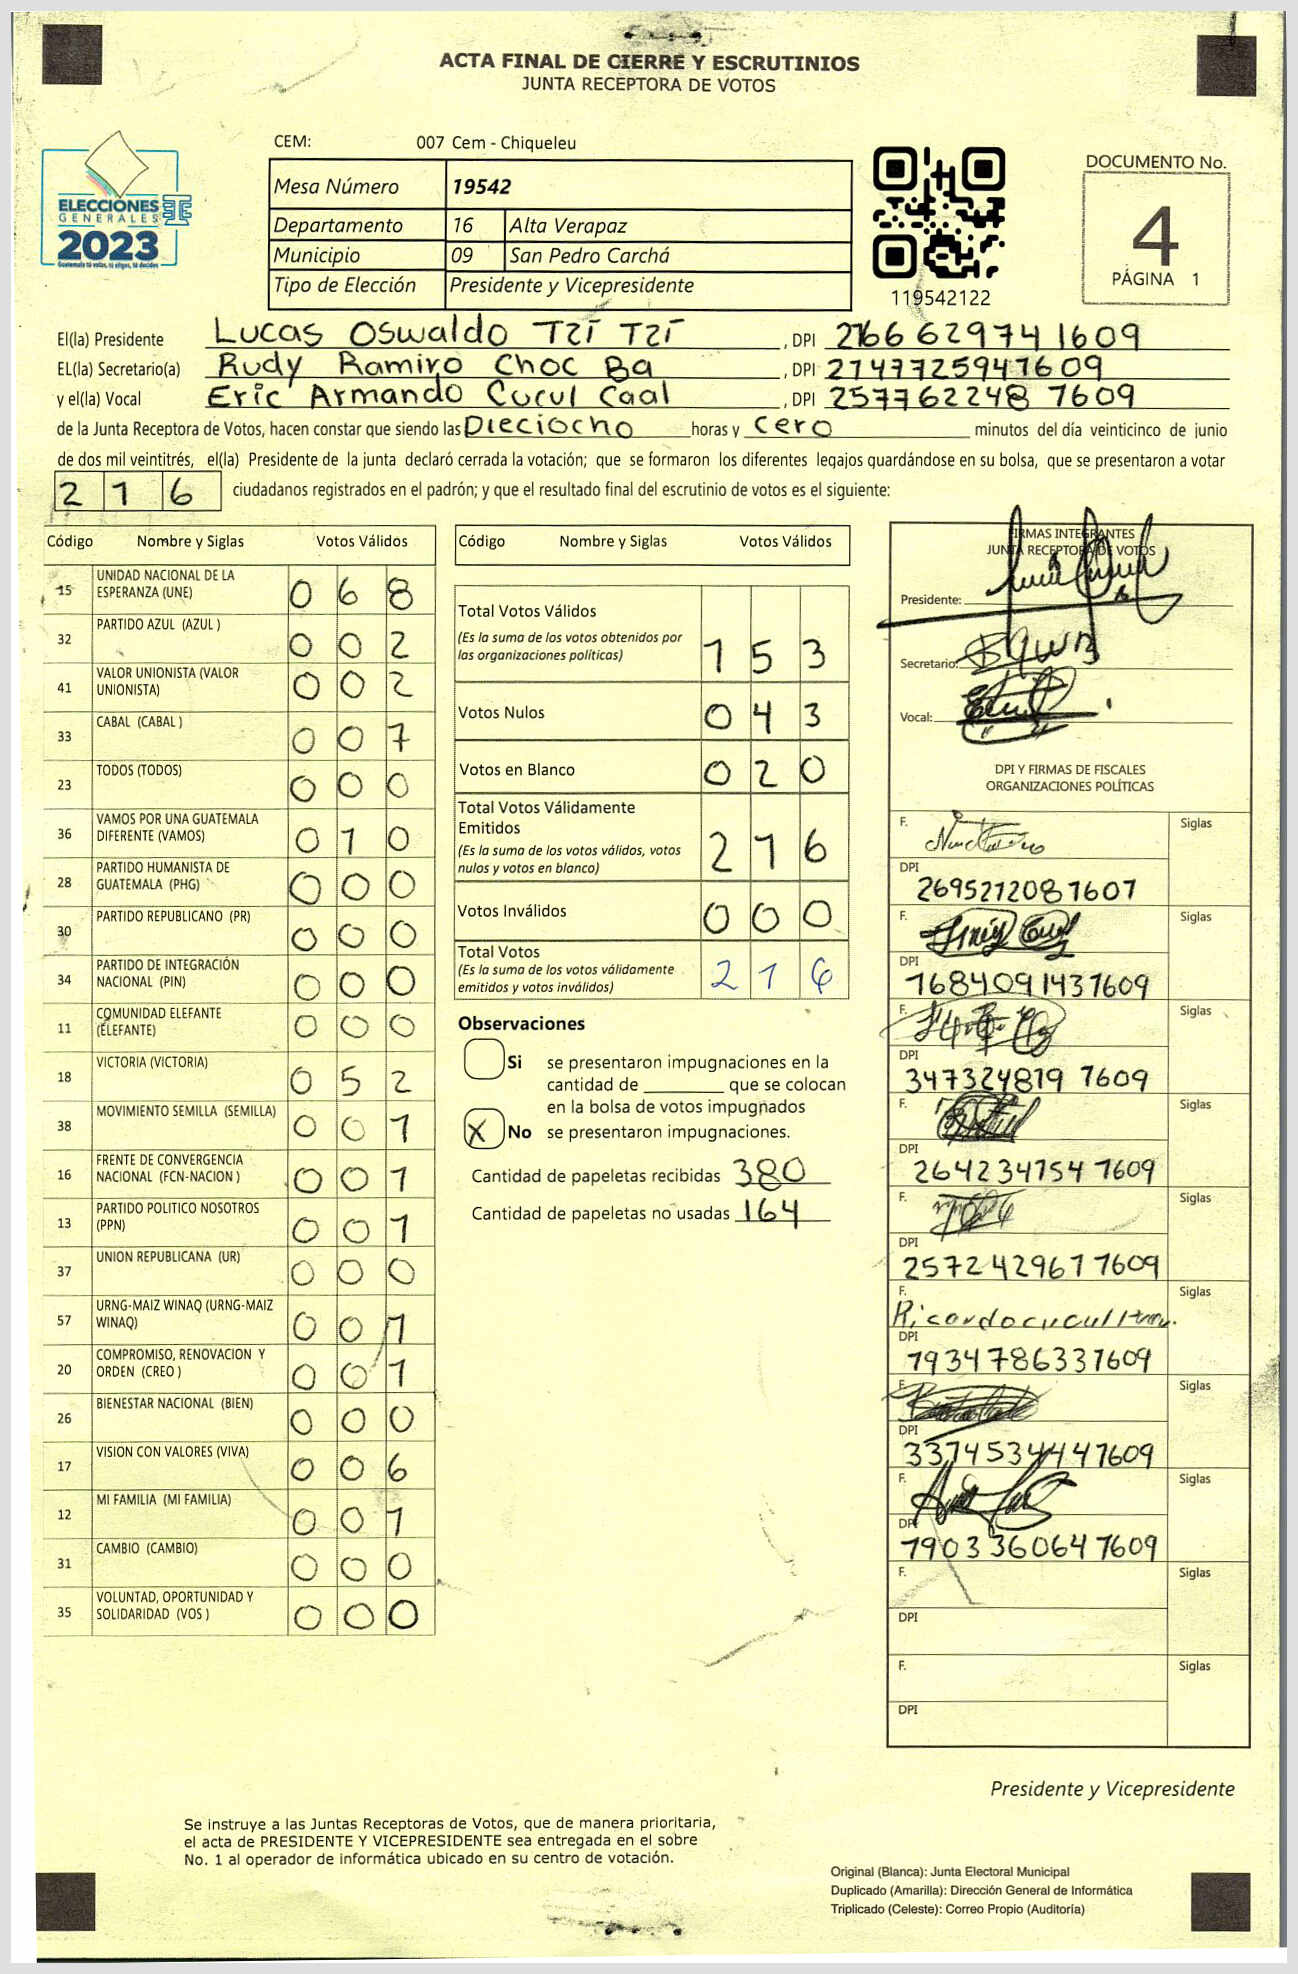 ACTA FINAL DE CIERRE Y ESCRUTINIOS
JUNTA RECEPTORA DE VOTOS
CEM: 007 Cem - Chiqueleu
ELECCIONES
GENERALES
2023
Guatemala tú votas, tú eliges, tú decides
Mesa Número 19542
Departamento 16 Alta Verapaz
Municipio 09 San Pedro Carchá
Tipo de Elección Presidente y Vicepresidente
119542122
DOCUMENTO No.
4
PÁGINA 1
El(la) Presidente Lucas Oswaldo Tzí Tzí , DPI 2166629741609
EL(la) Secretario(a) Rudy Ramiro Choc Ba , DPI 2147725941609
y el(la) Vocal Eric Armando Cucul Caal , DPI 2577622481609
de la Junta Receptora de Votos, hacen constar que siendo las Dieciocho horas y cero minutos del día veinticinco de junio
de dos mil veintitrés, el(la) Presidente de la junta declaró cerrada la votación; que se formaron los diferentes legajos guardándose en su bolsa, que se presentaron a votar
216 ciudadanos registrados en el padrón; y que el resultado final del escrutinio de votos es el siguiente:
Código Nombre y Siglas Votos Válidos
15 UNIDAD NACIONAL DE LA ESPERANZA (UNE) 0 6 8
32 PARTIDO AZUL (AZUL ) 0 0 2
41 VALOR UNIONISTA (VALOR UNIONISTA) 0 0 2
33 CABAL (CABAL ) 0 0 7
23 TODOS (TODOS) 0 0 0
36 VAMOS POR UNA GUATEMALA DIFERENTE (VAMOS) 0 1 0
28 PARTIDO HUMANISTA DE GUATEMALA (PHG) 0 0 0
30 PARTIDO REPUBLICANO (PR) 0 0 0
34 PARTIDO DE INTEGRACIÓN NACIONAL (PIN) 0 0 0
11 COMUNIDAD ELEFANTE (ELEFANTE) 0 0 0
18 VICTORIA (VICTORIA) 0 5 2
38 MOVIMIENTO SEMILLA (SEMILLA) 0 0 1
16 FRENTE DE CONVERGENCIA NACIONAL (FCN-NACION ) 0 0 1
13 PARTIDO POLITICO NOSOTROS (PPN) 0 0 1
37 UNION REPUBLICANA (UR) 0 0 0
57 URNG-MAIZ WINAQ (URNG-MAIZ WINAQ) 0 0 1
20 COMPROMISO, RENOVACION Y ORDEN (CREO ) 0 0 1
26 BIENESTAR NACIONAL (BIEN) 0 0 0
17 VISION CON VALORES (VIVA) 0 0 6
12 MI FAMILIA (MI FAMILIA) 0 0 1
31 CAMBIO (CAMBIO) 0 0 0
35 VOLUNTAD, OPORTUNIDAD Y SOLIDARIDAD (VOS ) 0 0 0
Código Nombre y Siglas Votos Válidos
Total Votos Válidos 1 5 3
(Es la suma de los votos obtenidos por
las organizaciones políticas)
Votos Nulos 0 4 3
Votos en Blanco 0 2 0
Total Votos Válidamente
Emitidos 2 1 6
(Es la suma de los votos válidos, votos
nulos y votos en blanco)
Votos Inválidos 0 0 0
Total Votos 2 1 6
(Es la suma de los votos válidamente
emitidos y votos inválidos)
Observaciones
Si se presentaron impugnaciones en la
cantidad de ________ que se colocan
en la bolsa de votos impugnados
X No se presentaron impugnaciones.
Cantidad de papeletas recibidas 380
Cantidad de papeletas no usadas 164
FIRMAS INTEGRANTES
JUNTA RECEPTORA DE VOTOS
Presidente:
Secretario:
Vocal:
DPI Y FIRMAS DE FISCALES
ORGANIZACIONES POLÍTICAS
F. Siglas
DPI 2695212081607
F. Siglas
DPI 1684091431609
F. Siglas
DPI 3473248191609
F. Siglas
DPI 2642341541609
F. Siglas
DPI 2572429671609
F. Ricardo cucul Siglas
DPI 1934786331609
F. Siglas
DPI 3374534441609
F. Siglas
DPI 1903360641609
F. Siglas
DPI
F. Siglas
DPI
Presidente y Vicepresidente
Se instruye a las Juntas Receptoras de Votos, que de manera prioritaria,
el acta de PRESIDENTE Y VICEPRESIDENTE sea entregada en el sobre
No. 1 al operador de informática ubicado en su centro de votación.
Original (Blanca): Junta Electoral Municipal
Duplicado (Amarilla): Dirección General de Informática
Triplicado (Celeste): Correo Propio (Auditoría)